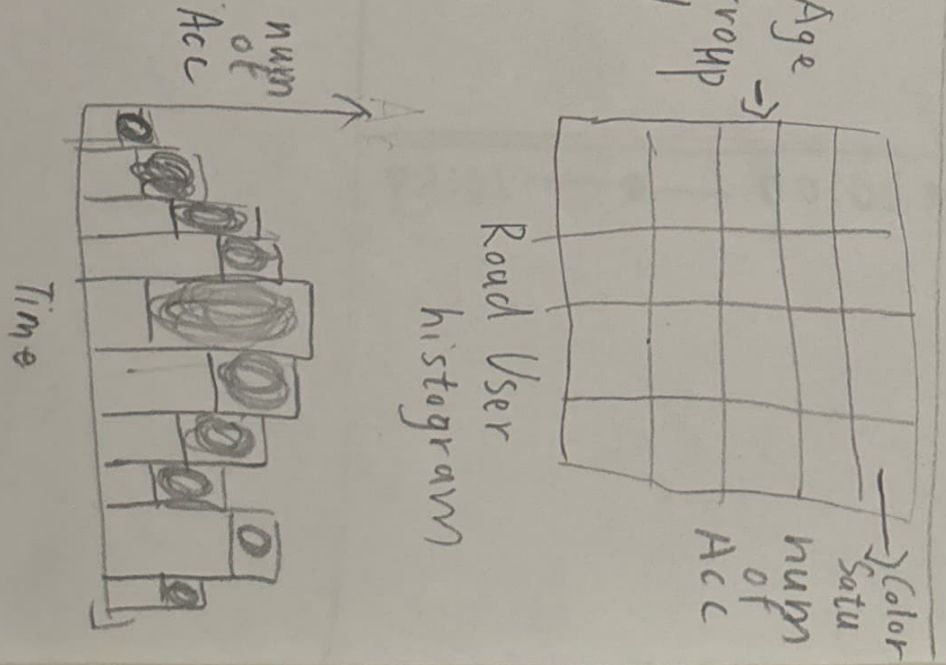 Age
roup
Color
Satu
num
of
Acc
Road User
histogram
num
of
Acc
Time